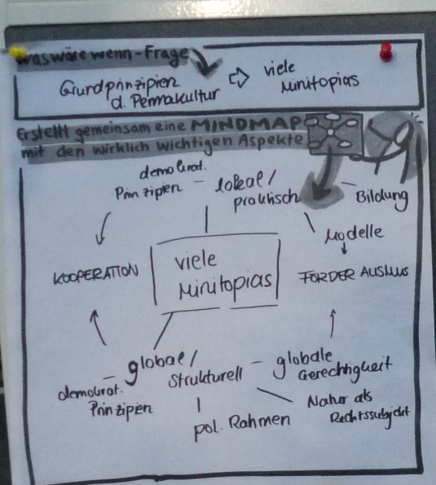 Was wäre wenn-Frage
Grundprinzipien
d. Permakultur
viele
Minitopias
Erstellt gemeinsam eine MINDMAP
mit den wirklich wichtigen Aspekte
demokrat.
Prinzipien
- lokal/
praktisch
- Bildung
Modelle
KOOPERATION
viele
Minitopias
FÖRDER
- global/
Strukturell
- globale
Gerechtigkeit
demokrat.
Prinzipien
pol. Rahmen
Natur als
Rechtssubjekt